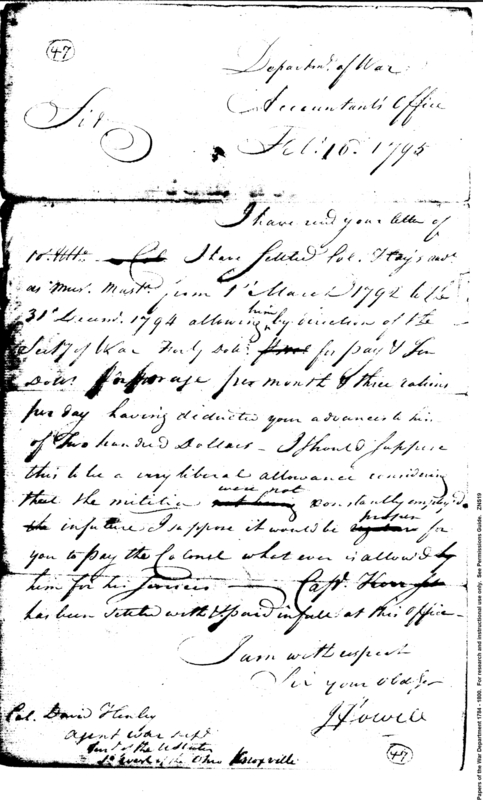 47
Departmt. of War
Accountant's Office
Sir
Feb. 16. 1795
I have recd your letter of
10. Ulto. Col I have Settled Col. Hay's acct
as Mus. Mastr from 1st March 1792 to the
31st Decem. 1794 allowing him by direction of the
Secty of War Forty Dolls. for pay & Ten
Dolls for forage per month & three rations
per day having deducted your advances to him
of Two hundred Dollars - I should suppose
this to be a very liberal allowance considering
that the militia were not constantly employed.
the in future I suppose it would be proper for
you to pay the Colonel what ever is allowed by
him for his services — Capt.
has been settled with & paid in full at this Office -
I am with respect
Sir your Obed. Sr
J Howell
Col. David Henley
Agent War Dept
Knoxville
47
Papers of the War Department 1784 - 1800. For research and instructional use only. See Permissions Guide. ZH619